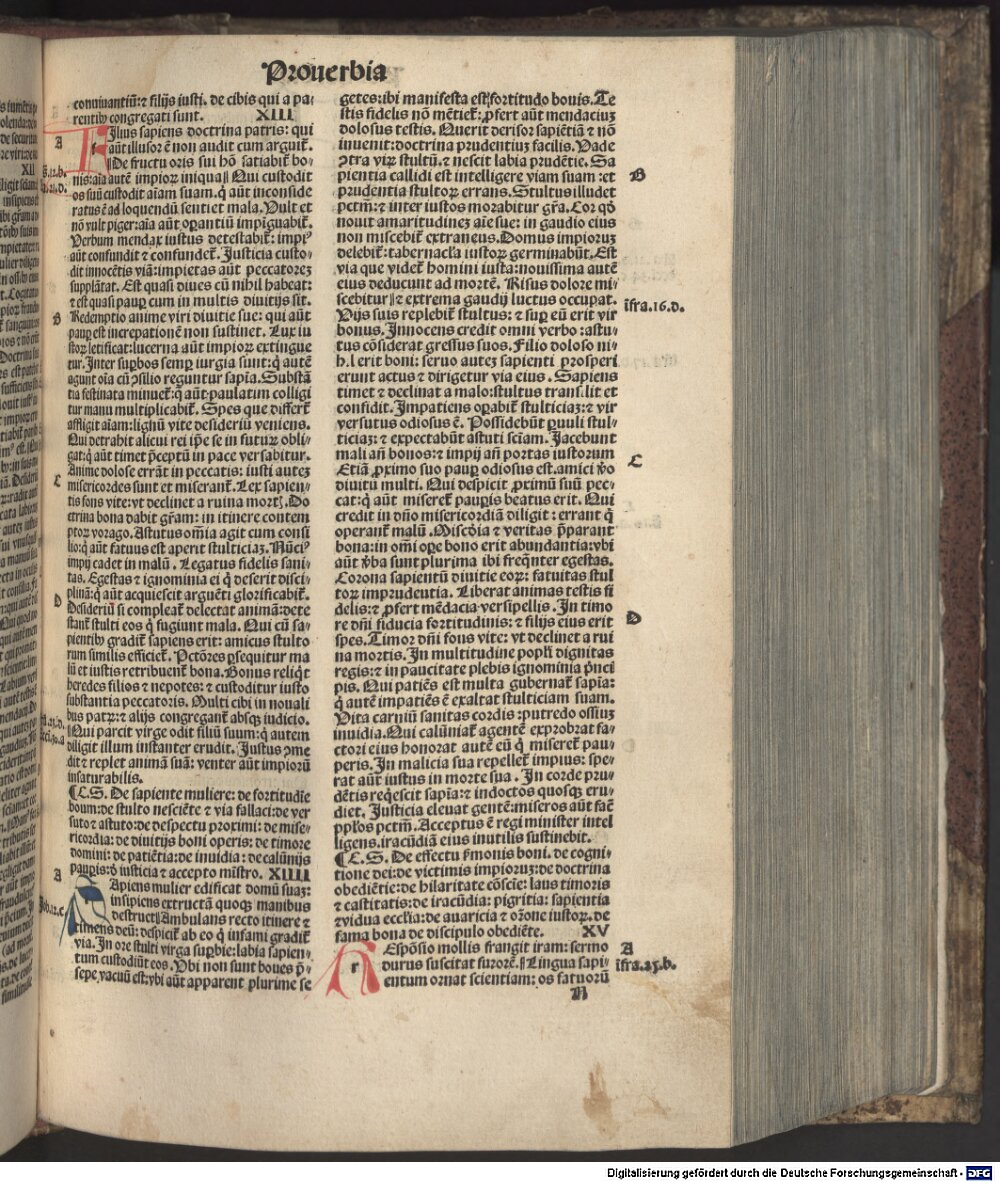 Prouerbia
conuiuantiū: ⁊ filijs iusti. de cibis qui a pa-
rentibꝰ congregati sunt. XIII
A
Filius sapiens doctrina patris: qui
aūt illusor ē non audit cum arguit̄.
De fructu oris sui hō satiabit̄ bo-
nis: aīa autē impioꝝ iniqua‖ Qui custodit
os suū custodit aīam suam. q̄ aūt inconside
ratus ē ad loquendū sentiet mala. Vult et
nō vult piger: aīa aūt oꝑantiū impiguabit̄.
Verbum mendax iustus detestabit̄: impiꝰ
aūt confundit ⁊ confundet̄. Justicia custo-
dit innocētis viā: impietas aūt peccatoreꝫ
supplātat. Est quasi diues cū nihil habeat:
⁊ est quasi pauꝑ cum in multis diuitijs sit.
B
Redemptio anime viri diuitie sue: qui aūt
pauꝑ est increpationē non sustinet. Lux iu
stoꝝ letificat: lucerna aūt impioꝝ extingue
tur. Inter suꝑbos semꝑ iurgia sunt: q̄ autē
agunt oīa cū ꝯsilio reguntur sapīa. Substā
tia festinata minuet̄: q̄ aūt paulatim colligi
tur manu multiplicabit̄. Spes que differt̄
affligit aīam: lignū vite desideriū veniens.
Qui detrahit alicui rei ip̄e se in futuꝝ obli-
gat: q̄ aūt timet p̄ceptū in pace versabitur.
Anime dolose errāt in peccatis: iusti auteꝫ
C
misericordes sunt et miserant̄. Lex sapien-
tis fons vite: vt declinet a ruina mortꝭ. Do
ctrina bona dabit gr̄am: in itinere contem
ptoꝝ vorago. Astutus om̄ia agit cum consi
lio: q̄ aūt fatuus est aperit stulticiaꝫ. Nūciꝰ
impij cadet in malū. Legatus fidelis sani-
tas. Egestas ⁊ ignominia ei q̄ deserit disci-
plinā: q̄ aūt acquiescit arguēti glorificabit̄.
D
Desideriū si compleat̄ delectat animā: dete
stant̄ stulti eos q̄ fugiunt mala. Qui cū sa-
pientibꝰ gradit̄ sapiens erit: amicus stulto
rum similis efficiet̄. Pctōres ꝑsequitur ma
lū et iustis retribuent̄ bona. Bonus reliq̄t
heredes filios ⁊ nepotes: ⁊ custoditur iusto
substantia peccatoris. Multi cibi in nouali
bus patꝝ: ⁊ alijs congregant̄ absqꝫ iudicio.
Qui parcit virge odit filiū suum: q̄ autem
diligit illum instanter erudit. Justus ꝯme
dit ⁊ replet animā suā: venter aūt impioꝝ
insaturabilis.
¶ C.S. De sapiente muliere: de fortitudīe
boum: de stulto nesciēte ⁊ via fallaci: de ver
suto ⁊ astuto: de despectu proximi: de mise-
ricordia: de diuitijs boni operis: de timore
domini: de patiētia: de inuidia: de calūnijs
pauꝑis: ꝺ̄ iusticia ⁊ accepto mīstro. XIIII
A
Sapiens mulier edificat domū suaꝫ:
insipiens extructā quoqꝫ manibus
destruet‖ Ambulans recto itinere ⁊
timens deū: despicit̄ ab eo q̄ infami gradit̄
via. In ore stulti virga suꝑbie: labia sapien-
tum custodiūt eos. Vbi non sunt boues p̄-
sepe vacuū est: vbi aūt apparent plurime se
getes: ibi manifesta est fortitudo bouis. Te
stis fidelis nō mētiet̄: ꝓfert aūt mendaciuꝫ
dolosus testis. Querit derisor sapiētiā ⁊ nō
inuenit: doctrina prudentiuꝫ facilis. Vade
ꝯtra viꝝ stultū: ⁊ nescit labia prudētie. Sa
B
pientia callidi est intelligere viam suam: et
prudentia stultoꝝ errans. Stultus illudet
pctm̄: ⁊ inter iustos morabitur gr̄a. Cor qꝺ
nouit amaritudineꝫ aīe sue: in gaudio eius
non miscebit̄ extraneus. Domus impioruꝫ
delebit̄: tabernacl̄a iustoꝝ germinabūt. Est
via que videt̄ homini iusta: nouissima autē
eius deducunt ad mortē. Risus dolore mi-
scebitur‖ ⁊ extrema gaudij luctus occupat.
īfra.16.d.
Vijs suis replebit̄ stultus: ⁊ suꝑ eū erit vir
bonus. Innocens credit omni verbo: astu-
tus cōsiderat gressus suos. Filio doloso ni-
hil erit boni: seruo auteꝫ sapienti prosperi
erunt actus ⁊ dirigetur via eius. Sapiens
timet ⁊ declinat a malo: stultus transilit et
confidit. Impatiens oꝑabit̄ stulticiaꝫ: ⁊ vir
versutus odiosus ē. Possidebūt ꝑuuli stul-
ticiaꝫ: ⁊ expectabūt astuti sciam. Jacebunt
mali an̄ bonos: ⁊ impij an̄ portas iustorum
C
Etiā ꝓximo suo pauꝑ odiosus est. amici ꝟo
diuitū multi. Qui despicit ꝓximū suū pec-
cat: q̄ aūt miseret̄ pauꝑis beatus erit. Qui
credit in dn̄o misericordiā diligit: errant q̄
operant̄ malū. Miscd̄ia ⁊ veritas p̄parant
bona: in om̄i oꝑe bono erit abundantia: vbi
aūt ꝟba sunt plurima ibi freq̄nter egestas.
Corona sapientū diuitie eoꝝ: fatuitas stul
toꝝ imprudentia. Liberat animas testis fi
delis: ⁊ ꝓfert mēdacia versipellis. In timo
D
re dn̄i fiducia fortitudinis: ⁊ filijs eius erit
spes. Timor dn̄i fons vite: vt declinet a rui
na mortis. In multitudine popl̄i dignitas
regis: ⁊ in paucitate plebis ignominia p̄nci
pis. Qui patiēs est multa gubernat̄ sapīa:
q̄ autē impatiēs ē exaltat stulticiam suam.
Vita carniū sanitas cordis: putredo ossiuꝫ
inuidia. Qui calūniat̄ agentē exprobrat fa-
ctori eius honorat autē eū q̄ miseret̄ pau-
peris. In malicia sua repellet̄ impius: spe-
rat aūt iustus in morte sua. In corde pru-
dētis reqͥescit sapīa: ⁊ indoctos quosqꝫ eru-
diet. Justicia eleuat gentē: miseros aūt facͥt
ppl̄os pctm̄. Acceptus ē regi minister intel
ligens. iracūdiā eius inutilis sustinebit.
¶ C.S. De effectu ẜmonis boni. de cogni-
tione dei: de victimis impioruꝫ: de doctrina
obediētie: de hilaritate cōscīe: laus timoris
⁊ castitatis: de iracūdia: pigritia: sapientia
⁊ vidua eccl̄ia: de auaricia ⁊ oꝛōne iustoꝝ. de
fama bona de discipulo obediēte. XV
A
Respōsio mollis frangit iram: sermo
durus suscitat furorē.‖ Lingua sapi-
īfra.25.b.
entum ornat scientiam: os fatuorū
N
Digitalisierung gefördert durch die Deutsche Forschungsgemeinschaft - DFG